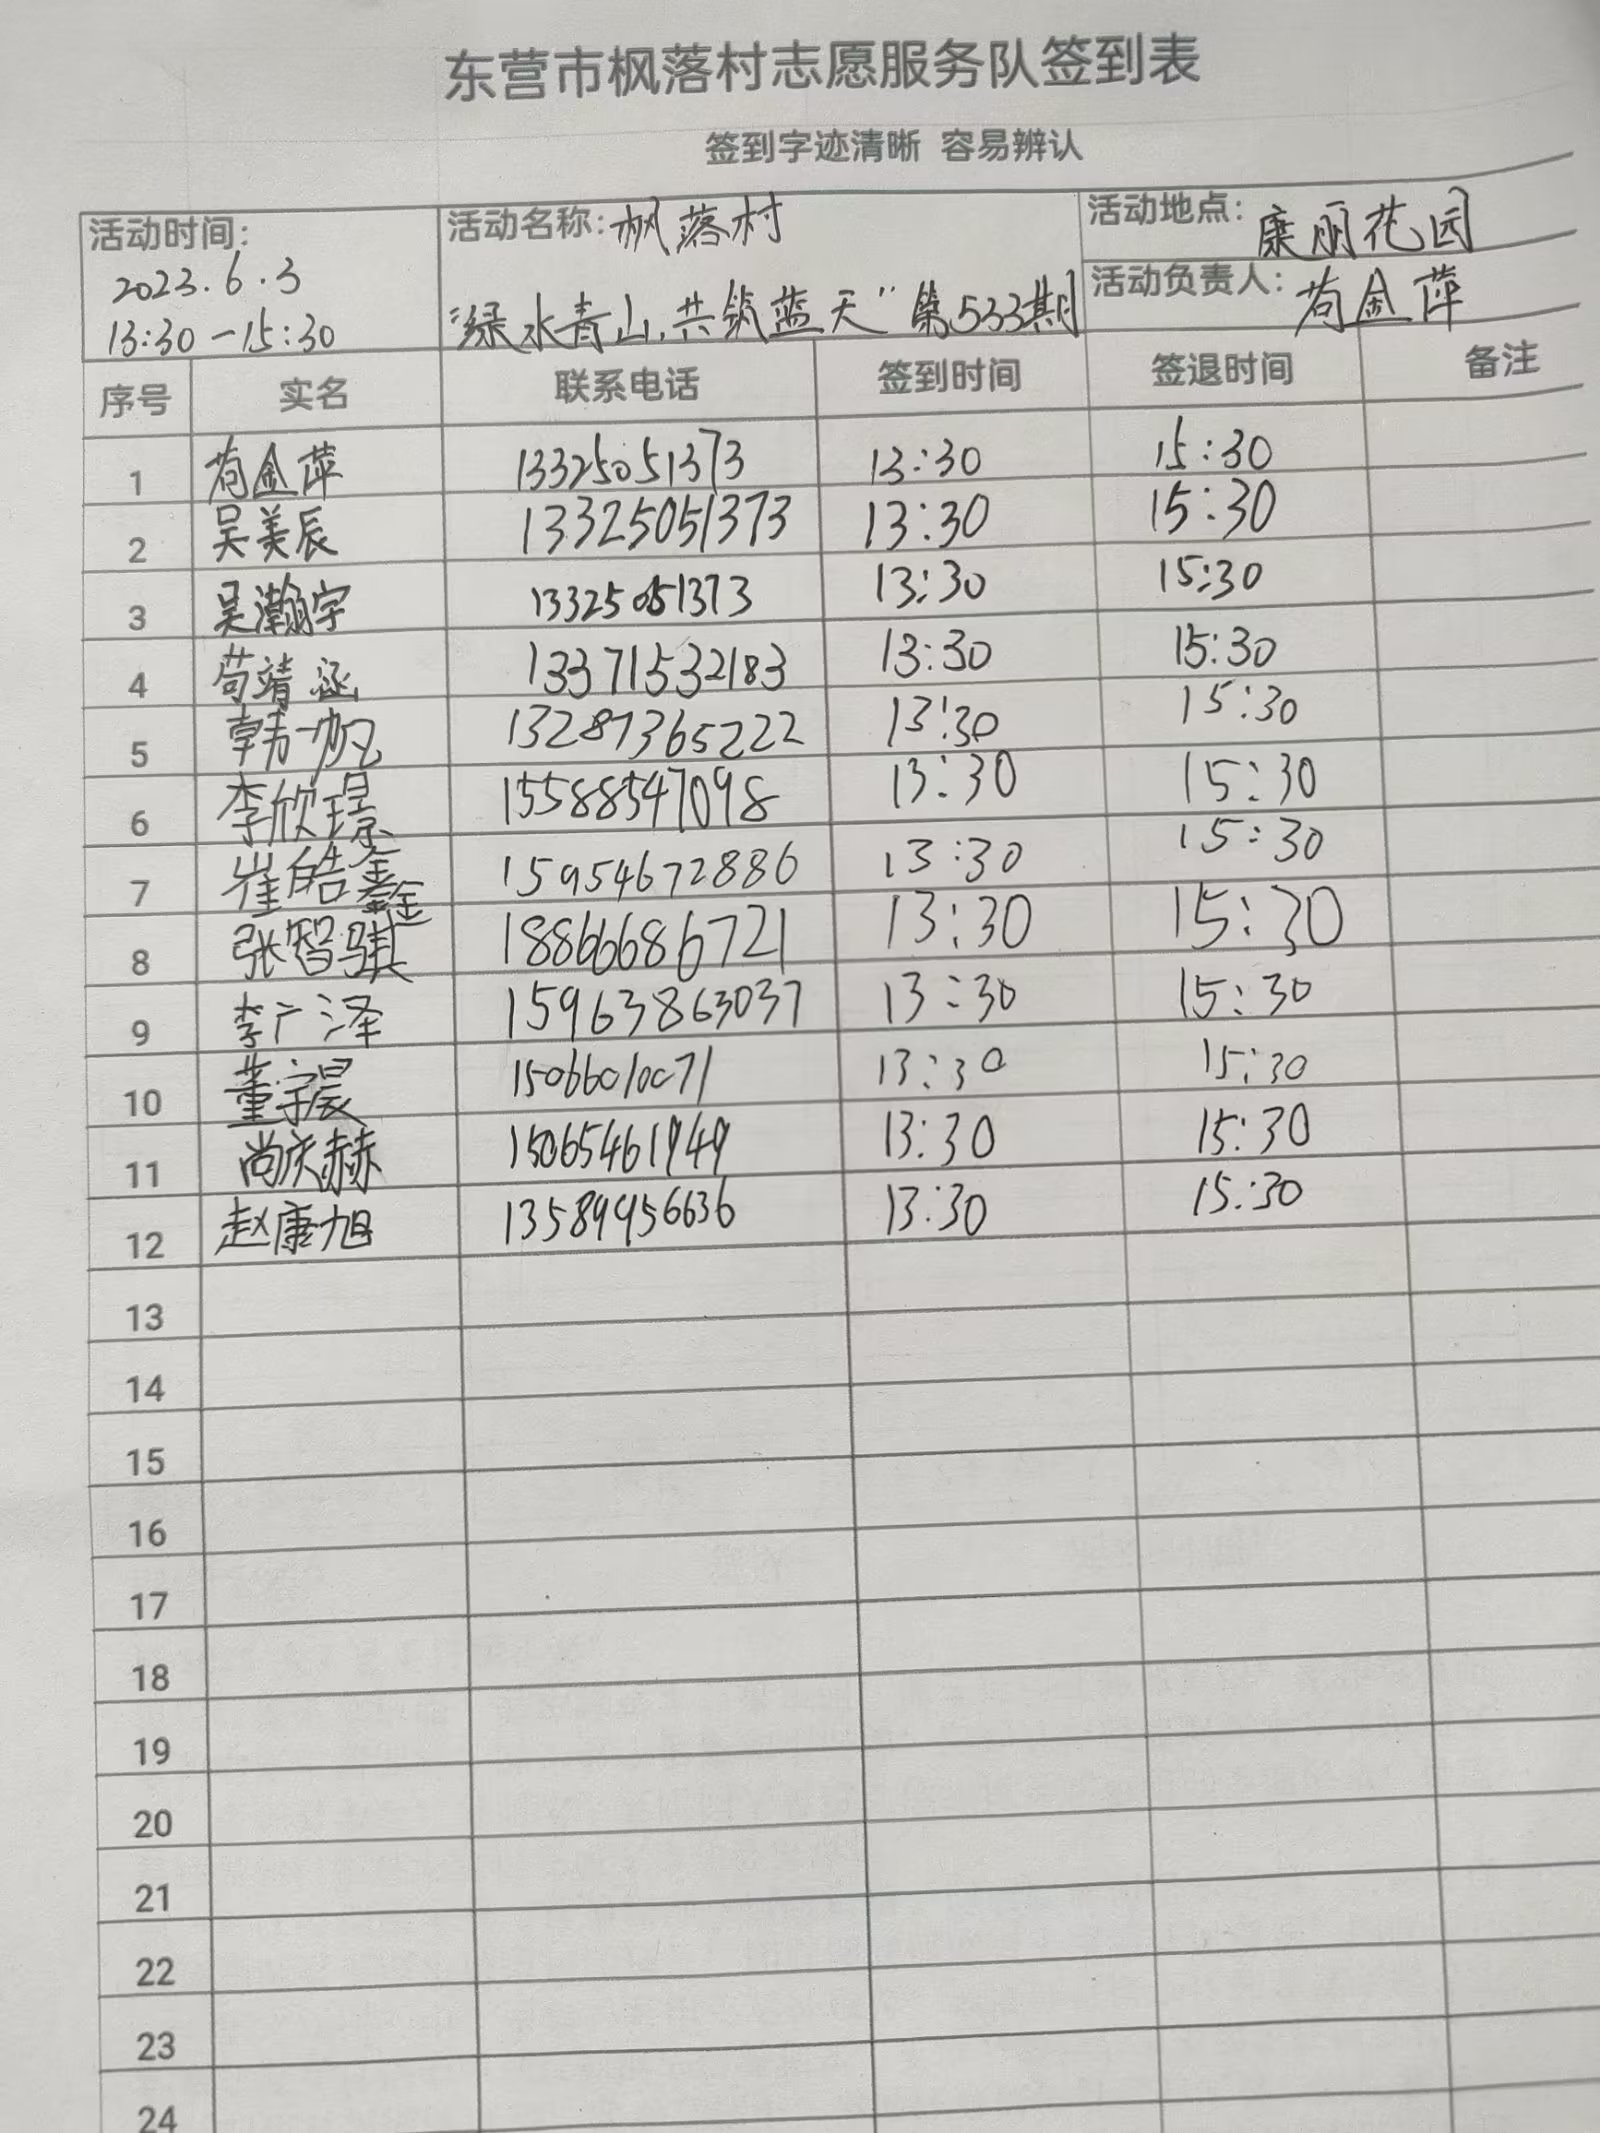 东营市枫落村志愿服务队签到表
签到字迹清晰 容易辨认
活动时间: 2023.6.3 13:30-15:30
活动名称: 枫落村
“绿水青山,共筑蓝天”第533期
活动地点: 康丽花园
活动负责人: 苟金萍
序号 实名 联系电话 签到时间 签退时间 备注
1 苟金萍 13325051373 13:30 15:30
2 吴美辰 13325051373 13:30 15:30
3 吴瀚宇 13325051373 13:30 15:30
4 苟靖涵 13371532183 13:30 15:30
5 韩一帆 13287365222 13:30 15:30
6 李欣璟 15588547098 13:30 15:30
7 崔皓鑫 15954672886 13:30 15:30
8 张智骐 18866686721 13:30 15:30
9 李广泽 15963863037 13:30 15:30
10 董宇晨 15066010071 13:30 15:30
11 尚庆赫 15065461949 13:30 15:30
12 赵康旭 13589956636 13:30 15:30
13
14
15
16
17
18
19
20
21
22
23
24